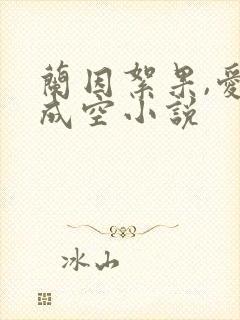 蘭因絮果,愛
成空小説
冰山